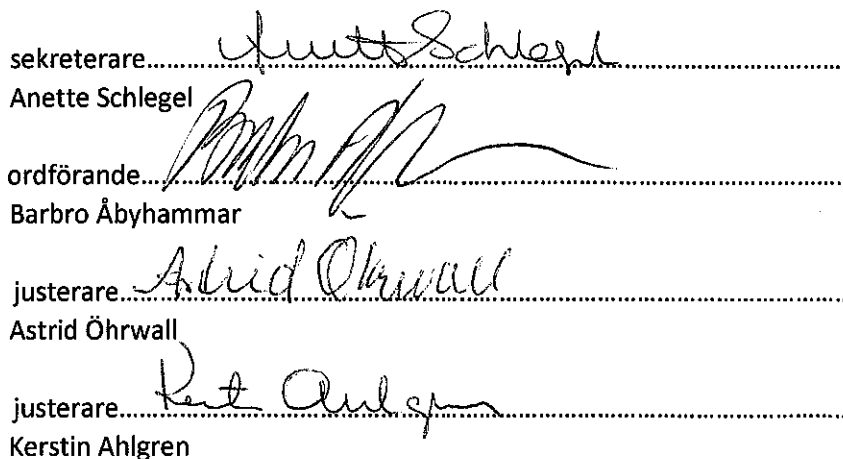 sekreterare.......Anette Schlegel.......
Anette Schlegel
ordförande.......
Barbro Åbyhammar
justerare.......Astrid Öhrwall.......
Astrid Öhrwall
justerare.......Kerstin Ahlgren.......
Kerstin Ahlgren